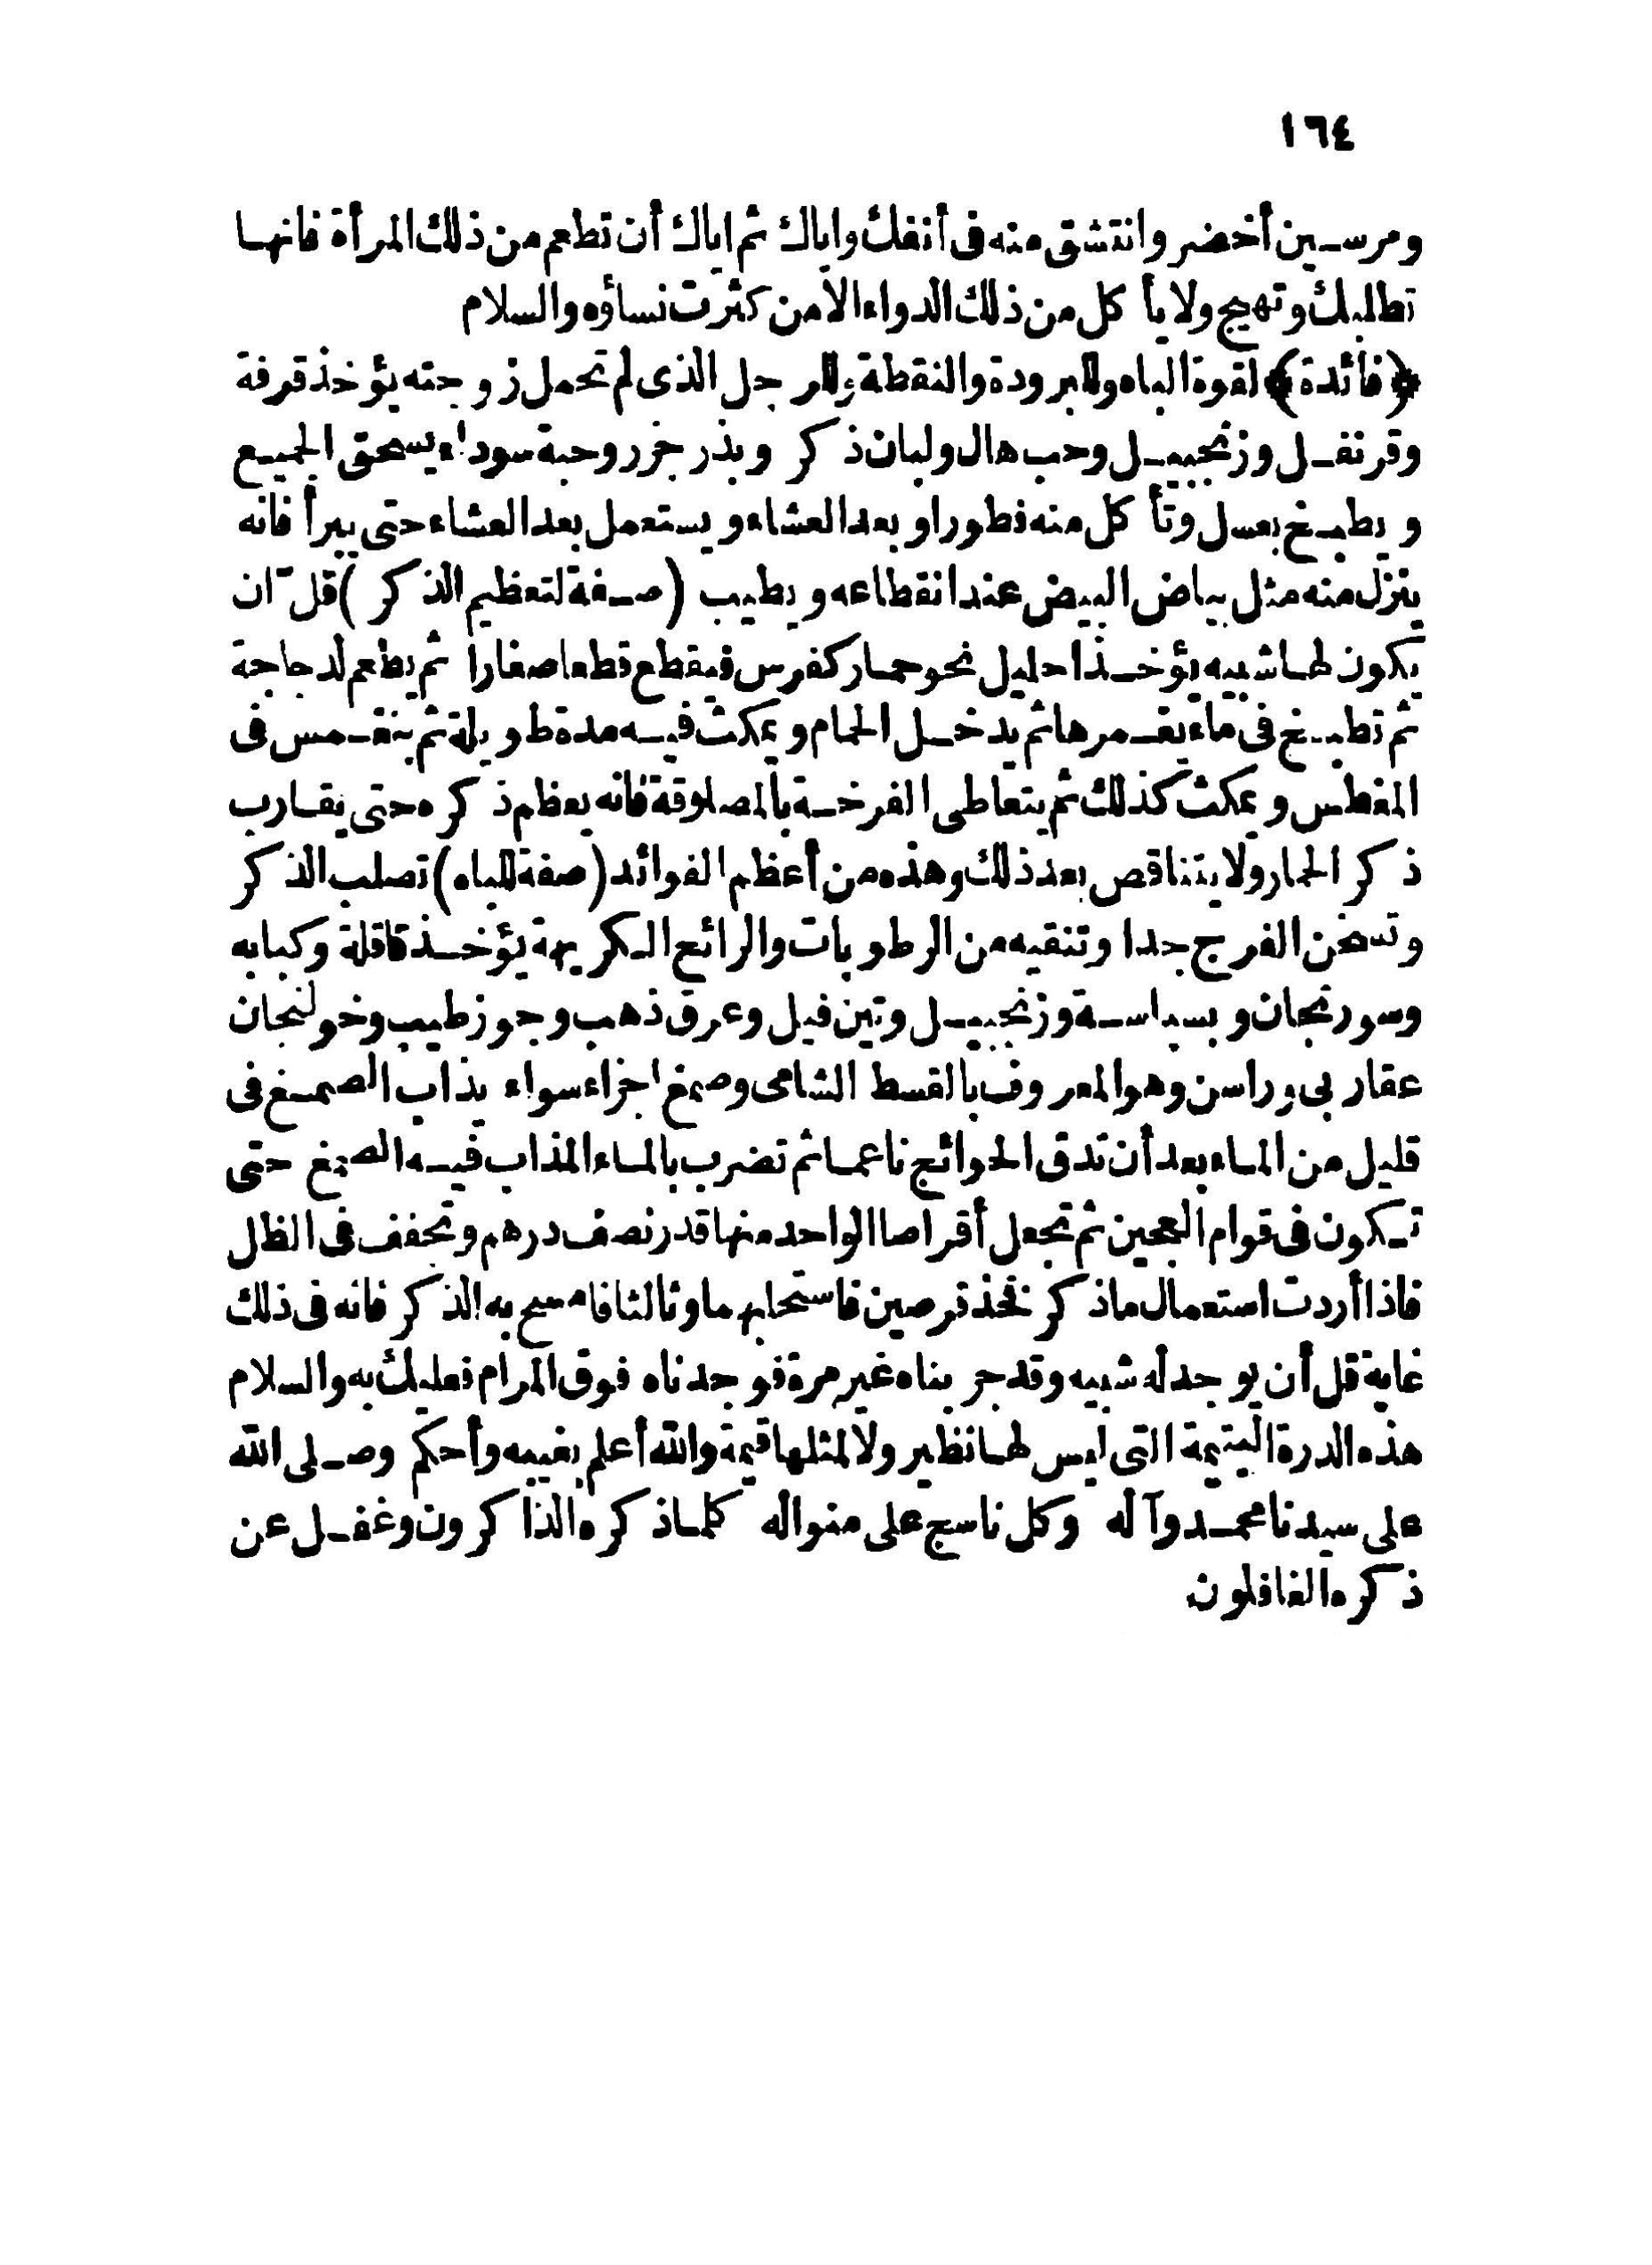 ١٦٤
ومرسين أخضر وانتشق منه فى أنفك واياك ثم اياك أن تطعم من ذلك المرأة فانها
تطلبك وتهيج ولا يأكل من ذلك الدواء الا من كثرت نساؤه والسلام
﴿فائدة﴾ لقوة الباه وللبرودة والنقطة وللرجل الذى لم تحمل زوجته يؤخذ قرفة
وقرنفل وزنجبيل وحب هال ولبان ذكر وبذر جزر وحبة سوداء يسحق الجميع
ويطبخ بعسل وتأكل منه فطورا وبعد العشاء ويستعمل بعد العشاء حتى يبرأ فانه
ينزل منه مثل بياض البيض عند انقطاعه ويطيب (صفة لتعظيم الذكر) قل ان
يكون لها شبيه يؤخذ احليل نحو حمار كفرس فيقطع قطعا صغارا ثم يطعم لدجاجة
ثم تطبخ فى ماء يغمرها ثم يدخل الحمام ويمكث فيه مدة طويلة ثم ينغمس فى
المغطس ويمكث كذلك ثم يتعاطى الفرخة بالمصلوقة فانه يعظم ذكره حتى يقارب
ذكر الحمار ولا يتناقص بعد ذلك وهذه من أعظم الفوائد (صفة للباه) تصلب الذكر
وتسخن الفرج جدا وتنقيه من الرطوبات والرائح الكريهة يؤخذ قاقلة وكبابه
وسورنجان وبسباسة وزنجبيل وتين فيل وعرق ذهب وجوز طيب وخولنجان
عقاربى وراسن وهو المعروف بالقسط الشامى وصمغ اجزاء سواء يذاب الصمغ فى
قليل من الماء بعد أن تدق الحوائج ناعما ثم تضرب بالماء المذاب فيه الصمغ حتى
تكون فى قوام العجين ثم تجعل أقراصا الواحد منها قدر نصف درهم وتجفف فى الظل
فاذا أردت استعمال ماذكر فخذ قرصين فاستحلبهما وثالثا فامسح به الذكر فانه فى ذلك
غاية قل أن يوجد له شبيه وقد جربناه غير مرة فوجدناه فوق المرام فعليك به والسلام
هذه الدرة اليتيمة التى ليس لها نظير ولا لمثلها قيمة والله أعلم بغيبه وأحكم وصلى الله
على سيدنا محمد وآله وكل ناسج على منواله كلما ذكره الذاكرون وغفل عن
ذكره الغافلون